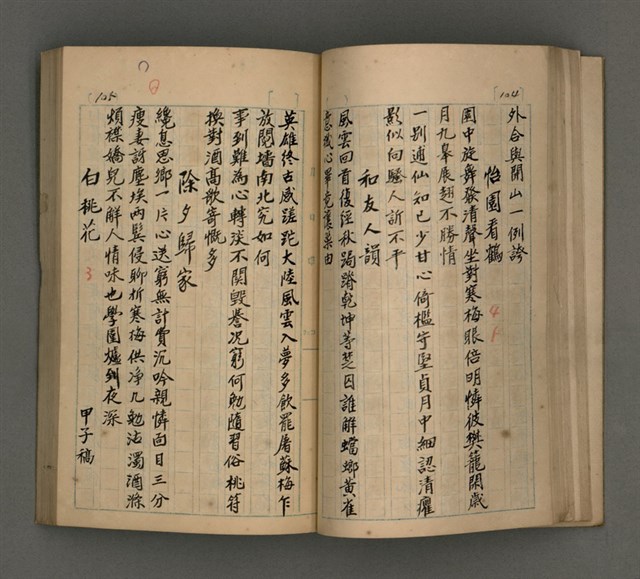 [104]
外合與關山一例誇
怡園看鶴
園中旋舞發清聲坐對寒梅眼倍明憐彼樊籠閑歲
月九皋展翅不勝情
一別逋仙知己少甘心倚檻守堅貞月中細認清癯
影似向騷人訴不平
和友人韻
風雲回首復經秋跼蹐乾坤等楚囚誰解螳螂黃雀
意戒心畢竟讓菜由
[105]
英雄終古感蹉跎大陸風雲入夢多飲罷屠蘇梅乍
放鬩墻南北究如何
事到難為心轉淡不關毀譽況窮何勉隨習俗桃符
換對酒高歌寄慨多
除夕歸家
纔息思鄉一片心送窮無計費沉吟親憐面目三分
瘦妻訝塵埃兩鬢侵聊折寒梅供净几勉沽濁酒滌
煩襟嬌兒不解人情味也學圍爐到夜深
白桃花
3
甲子稿